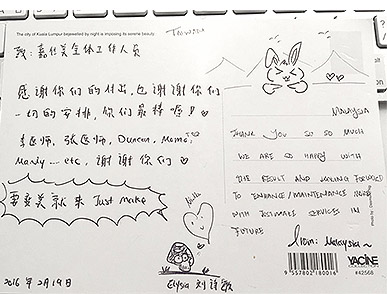 The city of Kuala Lumpur bejewelled by night is imposing its serene beauty.
致: 嘉仕美全体工作人员
感谢你们的付出,也谢谢你们
一切的安排,你们最棒喔!
李医师, 张医师, Duncan, Momo,
Mandy ... etc, 谢谢你们
要变美就来 Just make
2016 年 2月19日
Elysia 刘诗敏
Hello
Malaysia
THANK YOU SO SO MUCH
WE ARE SO HAPPY WITH
THE RESULT AND LOOKING FORWARD
TO ENHANCE/MAINTENANCE
WITH JUSTMAKE SERVICES IN
FUTURE
from: Malaysia ~
YACINE
9 557802 180016
#42568